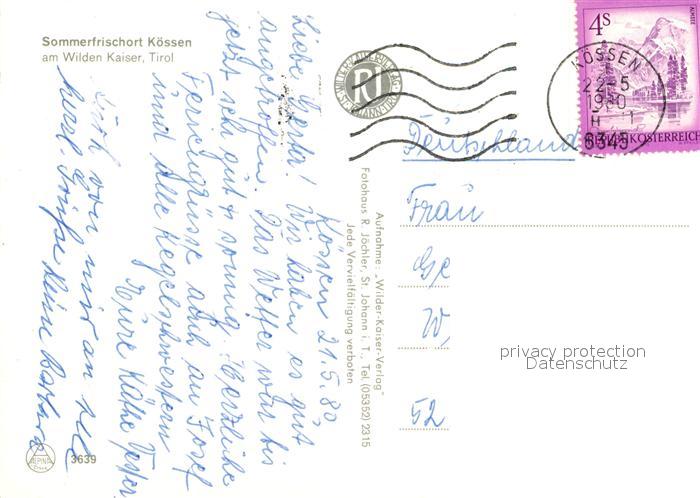 Sommerfrischort Kössen
am Wilden Kaiser, Tirol
Kössen 21.5.80
Liebe Gerta! Wir haben es gut
angetroffen. Das Wetter war bis
jetzt sehr gut & sonnig. Herzliche
Feriengrüsse auch an Josef
und alle Kegelschwestern
Eure Käthe
Auch von mir an alle
herzl. Grüße Deine Barbara
3639
Aufnahme: „Wilder-Kaiser-Verlag"
Fotohaus R. Jöchler, St. Johann i. T., Tel. (05352) 2315
Jede Vervielfältigung verboten
KÖSSEN
22.-5
1980
6345
4S
ALMSEE
REPUBLIK ÖSTERREICH
Deutschland
Frau
Ge
W.
52
privacy protection
Datenschutz